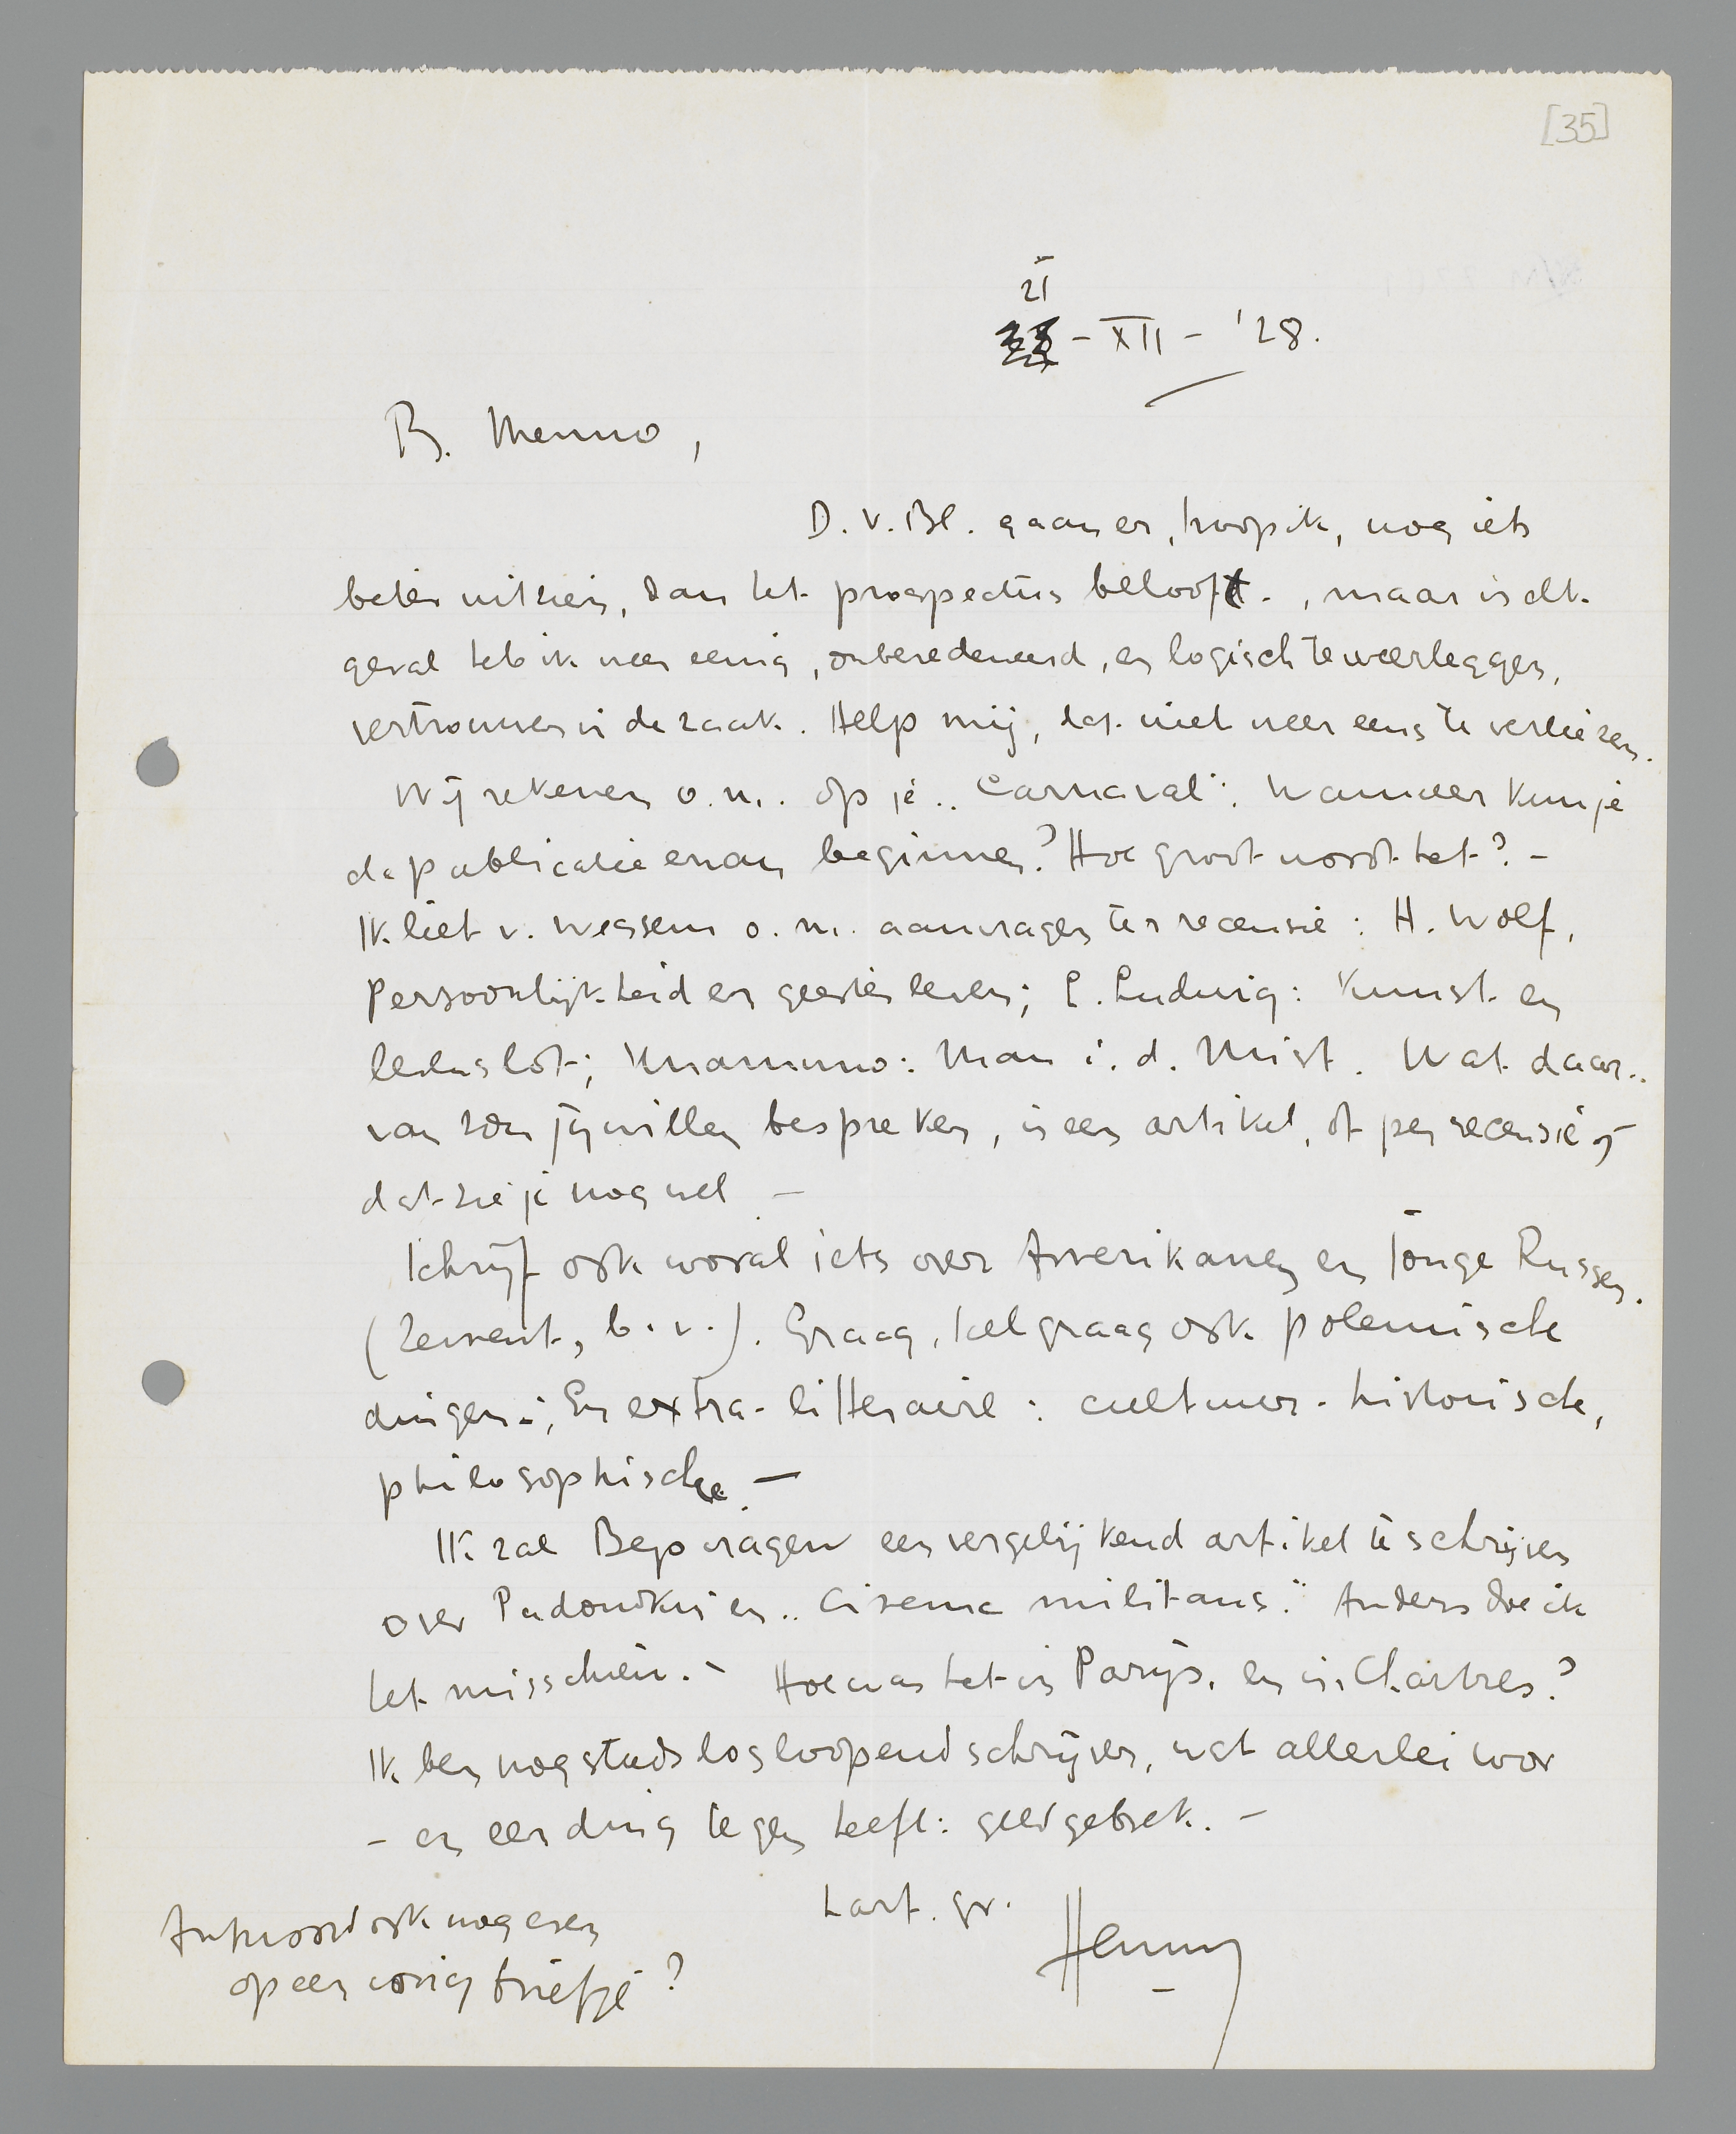 [35]
21
- XII - '28.
B. Menno,
D. V. Bl. gaan er, hoop ik, nog iets
beter uitzien, dan het prospectus belooft., maar in elk
geval heb ik weer eenig, onberedeneerd, en logisch te weerleggen,
vertrouwen in de zaak. Help mij, dat niet weer eens te verliezen.
Wij rekenen o.m. op je „Carnaval”. Wanneer kun je
de publicatie ervan beginnen? Hoe groot wordt het? -
Ik liet v. Wessem o.m. aanvragen ter recensie: H. Wolf,
Persoonlijkheid en geestesleven; E. Ludwig: Kunst en
levenslot; Unamuno: Man i. d. Mist. Wat daar-
van zou jij willen bespreken, in een artikel, of per recensie,
dat zie je nog wel. -
Schrijf ook vooral iets over Amerikanen en jonge Russen.
(Cement, b.v.). Graag, heel graag ook polemische
dingen; En extra-litteraire: cultuur-historische,
philosophische. -
Ik zal Bep vragen een vergelijkend artikel te schrijven
over Pudowkin en „Cinema militans.” Anders doe ik
het misschien. - Hoe was het in Parijs, en in Chartres?
Ik ben nog steeds losloopend schrijver, wat allerlei voor
- en een ding tegen heeft: geldgebrek. -
hart. gr.
Henny
Antwoord ook nog even
op een vorig briefje?